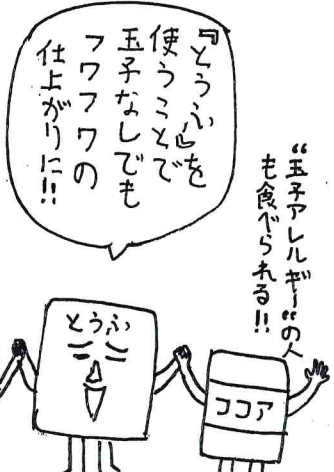 『とうふ』を
使うことで
玉子なしでも
フワフワの
仕上がりに!!
“玉子アレルギー”の人
も食べられる!!
とうふ
ココア